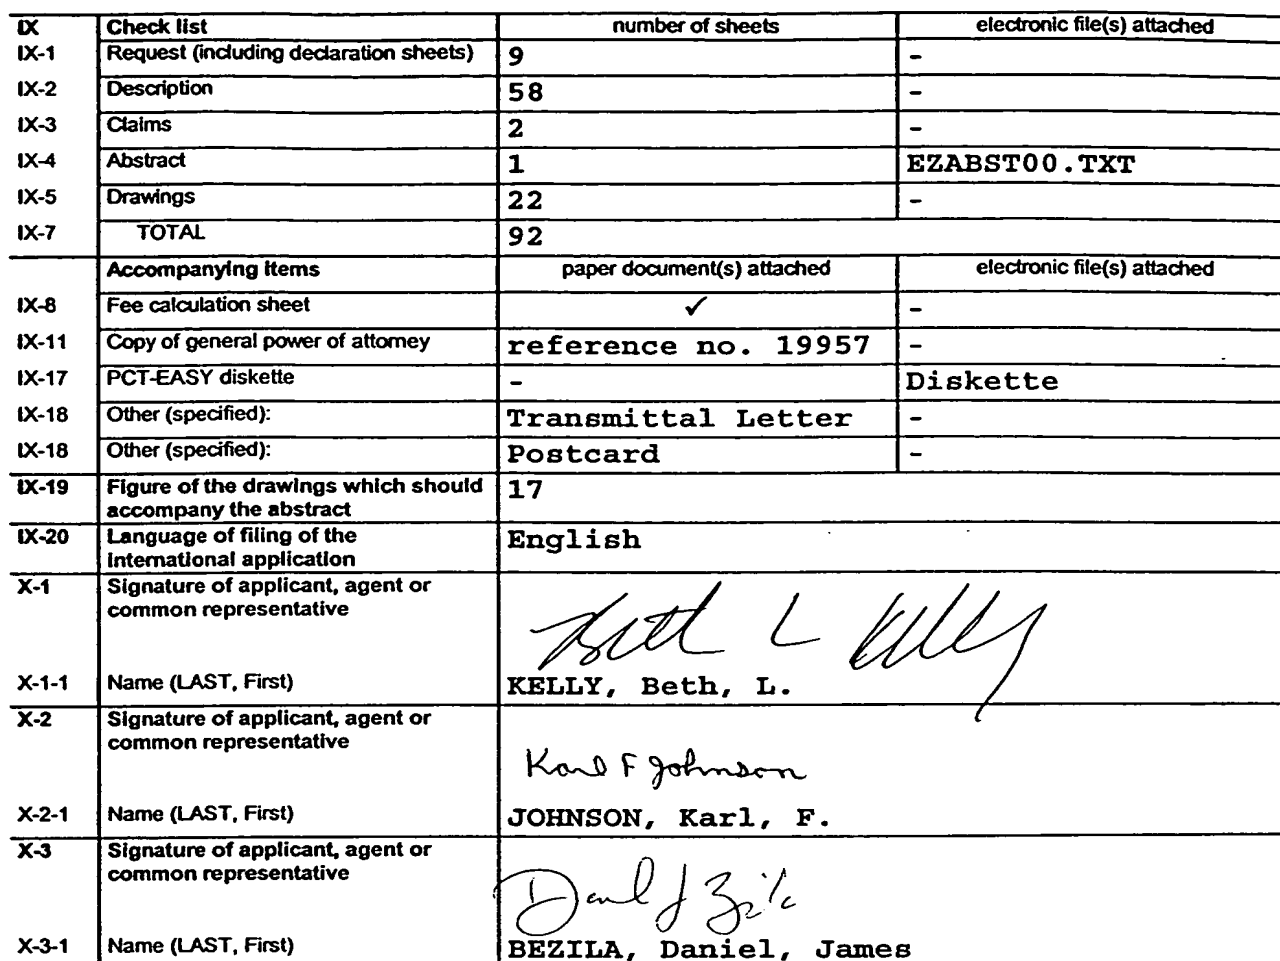 IX Check list number of sheets electronic file(s) attached
IX-1 Request (including declaration sheets) 9 -
IX-2 Description 58 -
IX-3 Claims 2 -
IX-4 Abstract 1 EZABST00.TXT
IX-5 Drawings 22 -
IX-7 TOTAL 92
Accompanying Items paper document(s) attached electronic file(s) attached
IX-8 Fee calculation sheet ✓ -
IX-11 Copy of general power of attorney reference no. 19957 -
IX-17 PCT-EASY diskette - Diskette
IX-18 Other (specified): Transmittal Letter -
IX-18 Other (specified): Postcard -
IX-19 Figure of the drawings which should 17
accompany the abstract
IX-20 Language of filing of the English
international application
X-1 Signature of applicant, agent or
common representative
Beth L Kelly
X-1-1 Name (LAST, First) KELLY, Beth, L.
X-2 Signature of applicant, agent or
common representative
Karl F Johnson
X-2-1 Name (LAST, First) JOHNSON, Karl, F.
X-3 Signature of applicant, agent or
common representative
Daniel J
X-3-1 Name (LAST, First) BEZILA, Daniel, James